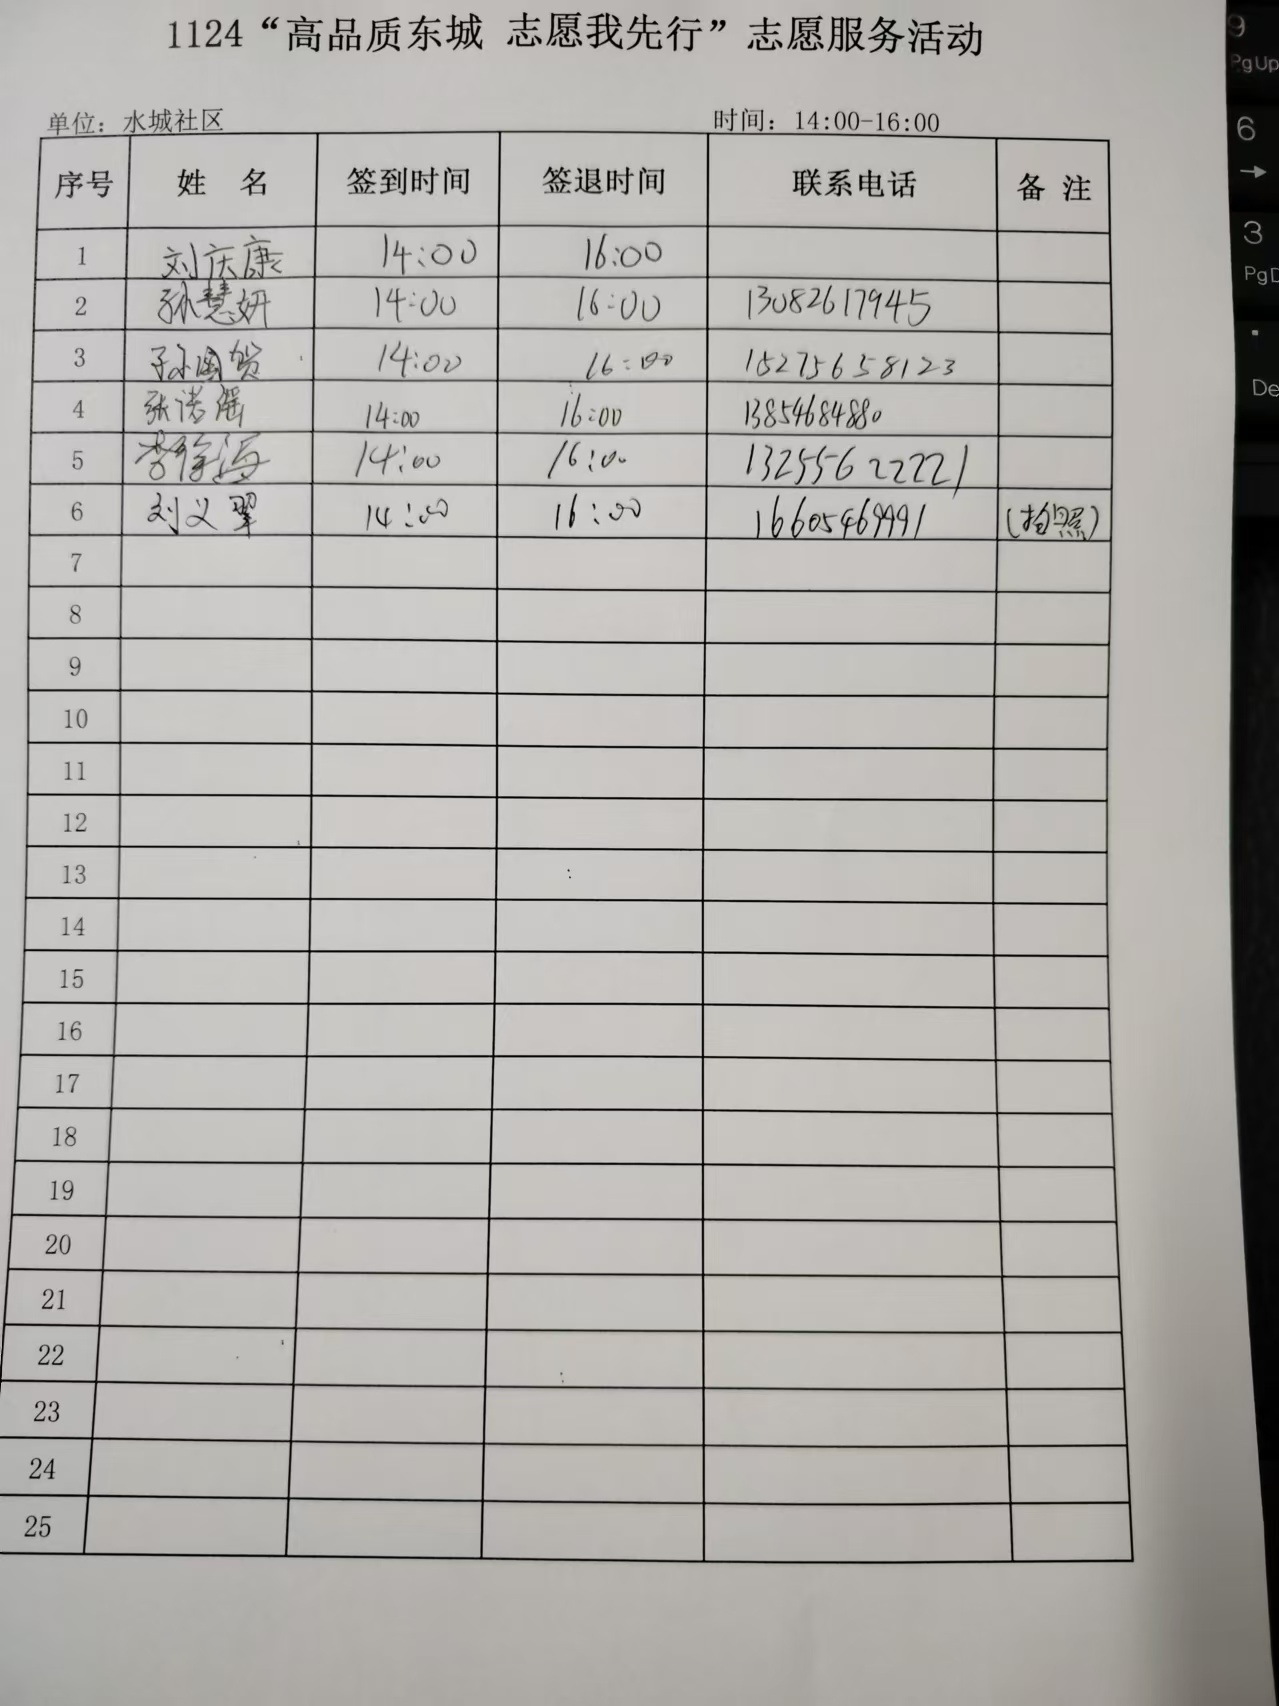 1124“高品质东城 志愿我先行”志愿服务活动
单位：水城社区 时间：14:00-16:00
序号 姓 名 签到时间 签退时间 联系电话 备 注
1 刘庆康 14:00 16:00
2 孙慧妍 14:00 16:00 13082617945
3 孙国贺 14:00 16:00 15275658123
4 张诺瑶 14:00 16:00 13854684880
5 李徐海 14:00 16:00 13255622221
6 刘义翠 14:00 16:00 16605469991 (拍照)
7
8
9
10
11
12
13
14
15
16
17
18
19
20
21
22
23
24
25
9
PgUp
6
→
3
PgD
.
De